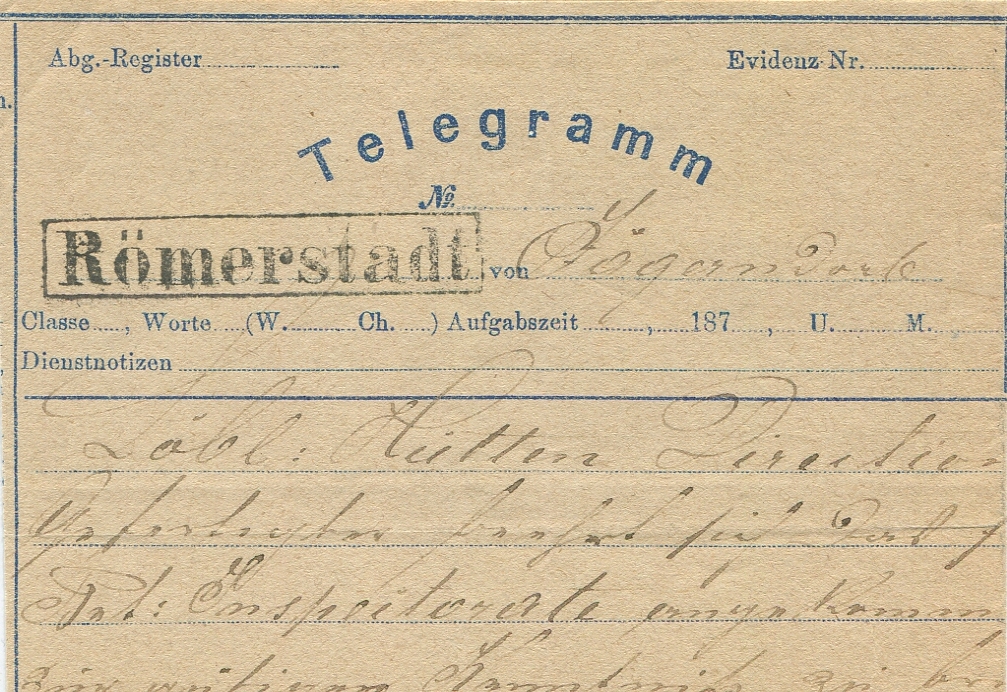 Abg.-Register
Evidenz-Nr.
n.
Telegramm
№
Römerstadt von Jägerndorf
Classe , Worte (W. Ch. ) Aufgabszeit , 187 , U. M.
Dienstnotizen
Löbl: Hütten Direction
Gefertigter beehrt sich das
Inspectorate angekomm
Kenntniß zu